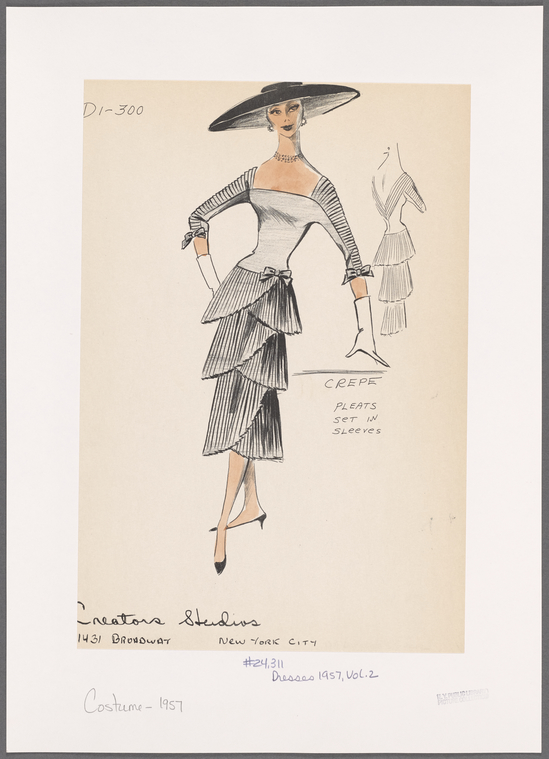 D1-300
CREPE
PLEATS
SET IN
SLEEVES
Creators Studios
1431 BROADWAY NEW YORK CITY
#24,311
Dresses 1957, Vol. 2
Costume - 1957